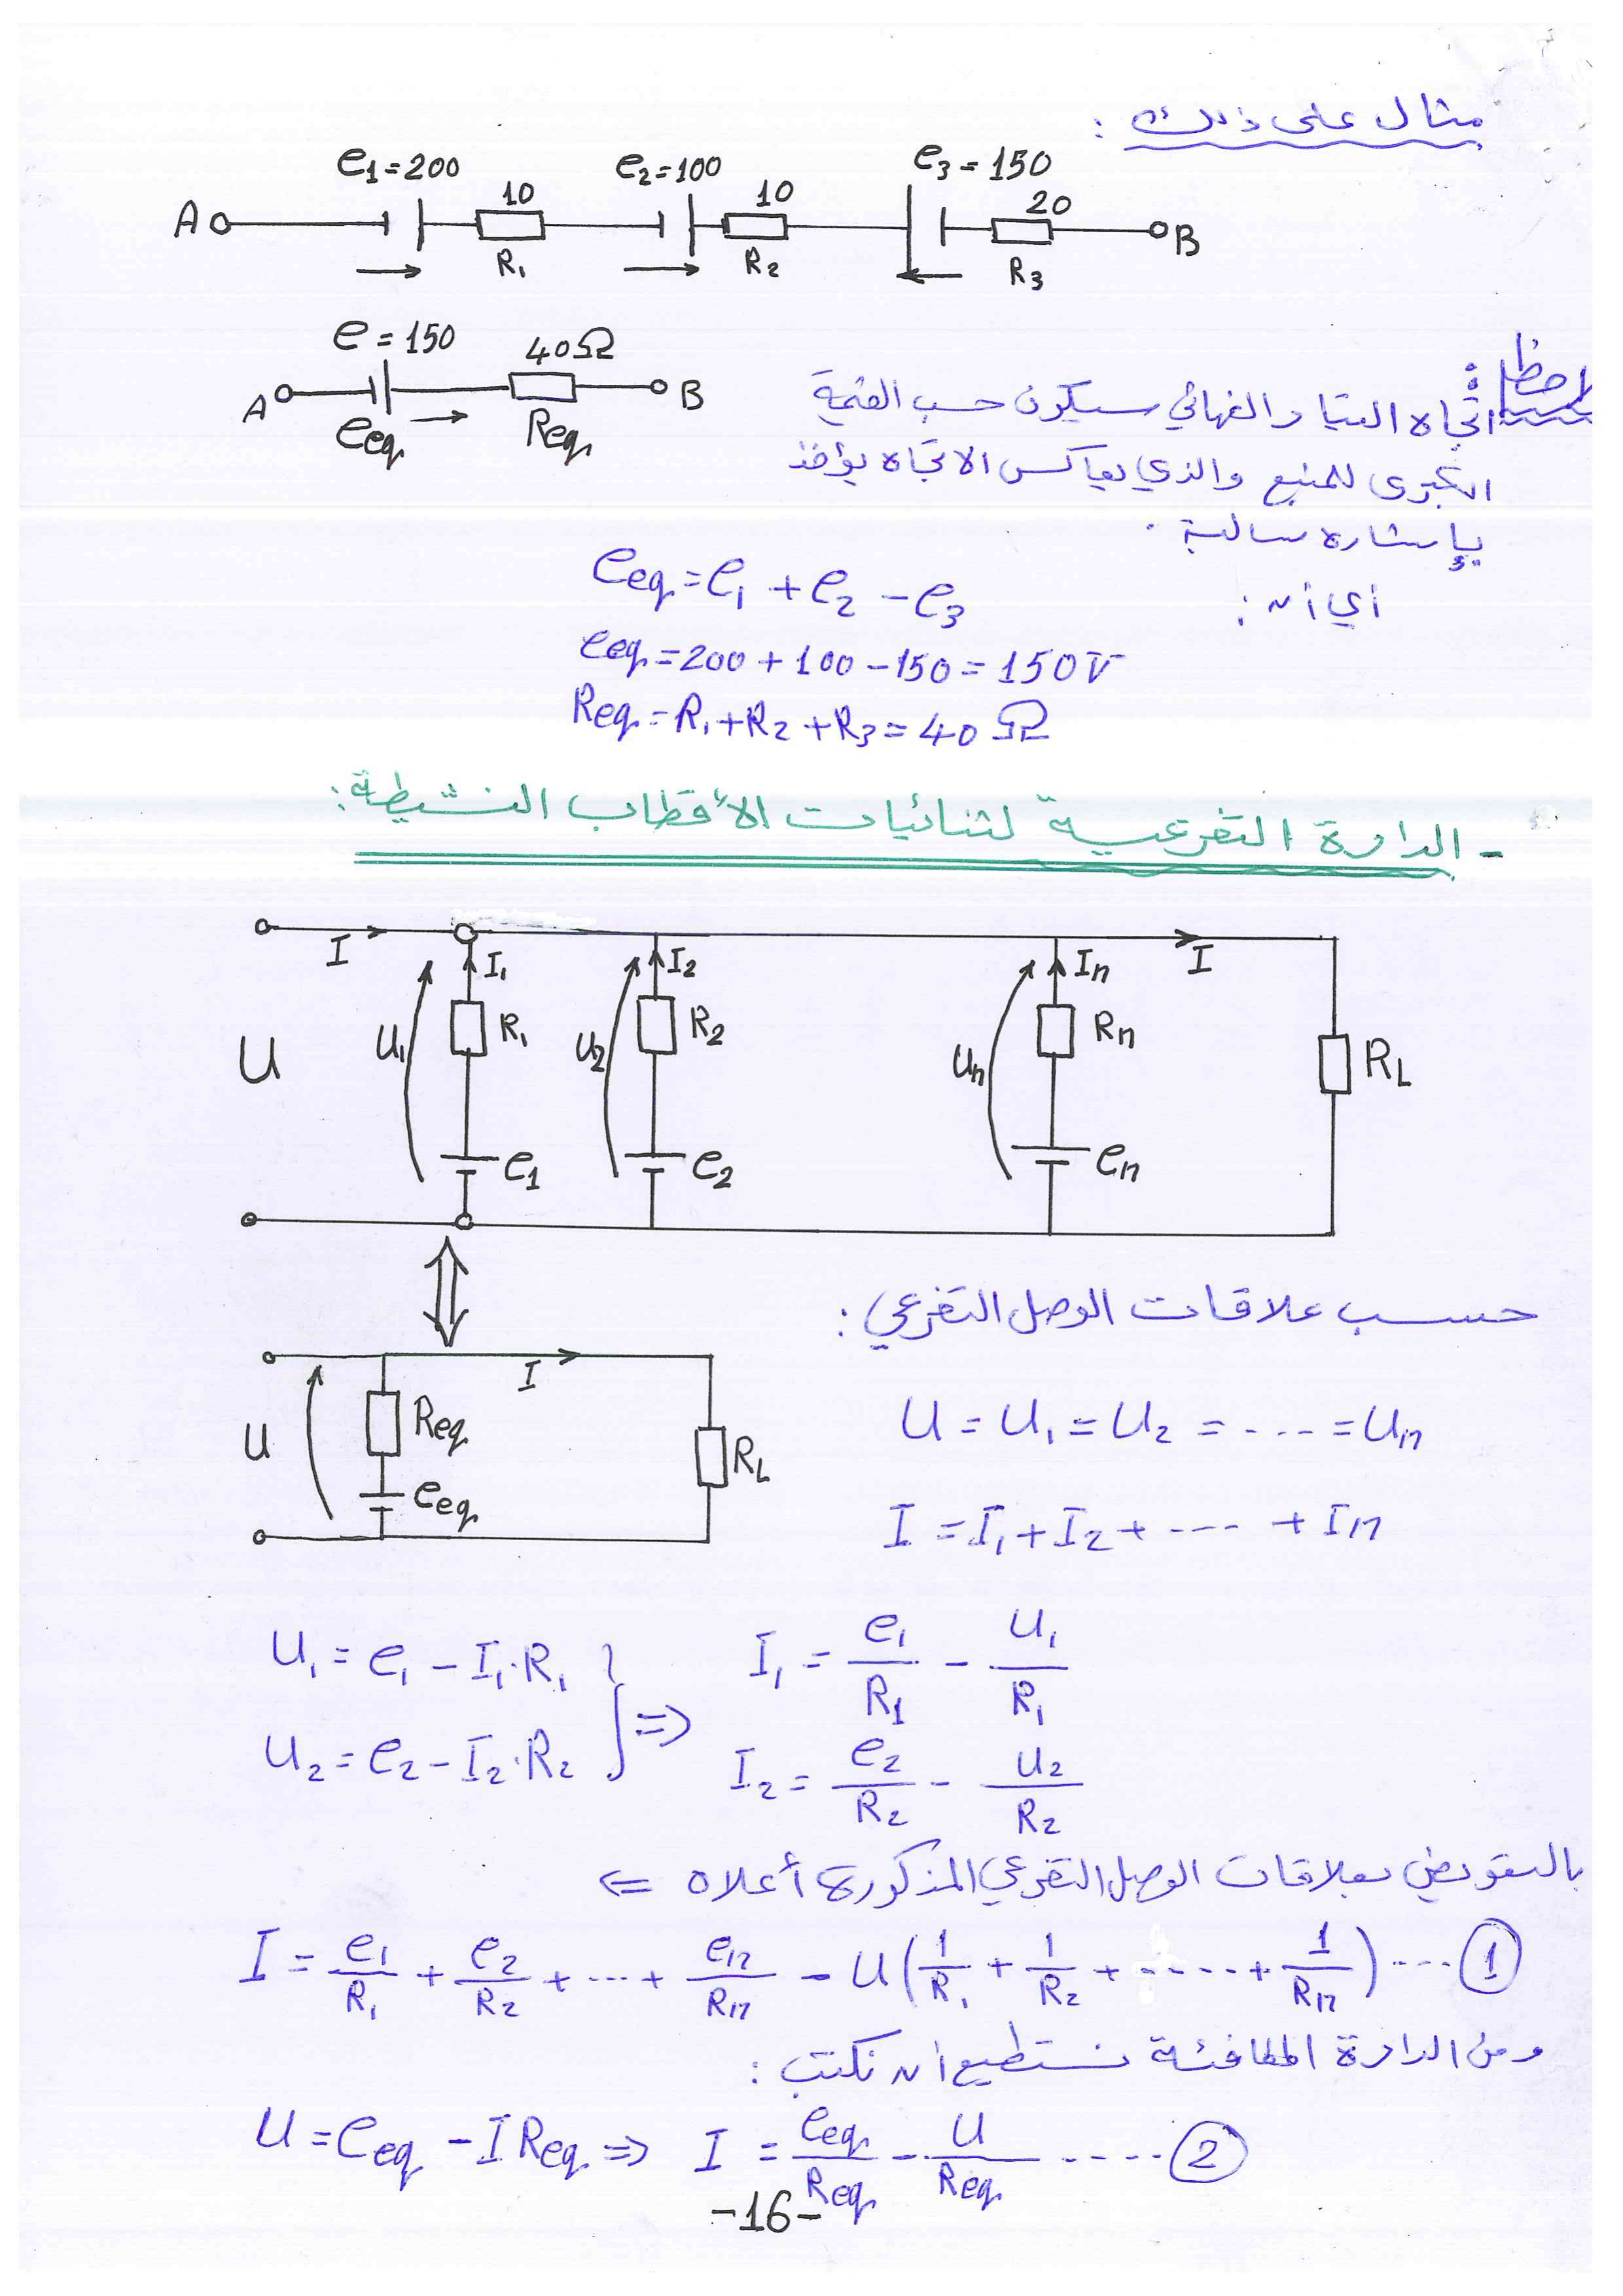 مثال على ذلك :
e1=200 e2=100 e3=150
A 10 10 20 B
R1 R2 R3
e=150 40Ω
A B
eeq Req
لاحظ :
اتجاه التيار النهائي سيكون حسب القيمة
الكبرى للمنبع والذي يعاكس الاتجاه يؤخذ
بإشارة سالبة .
أي أن :
eeq = e1 + e2 - e3
eeq = 200 + 100 - 150 = 150V
Req = R1 + R2 + R3 = 40 Ω
- الدارة التفرعية لثنائيات الأقطاب النشيطة :
I I1 I2 In I
U U1 R1 U2 R2 Un Rn RL
e1 e2 en
حسب علاقات الوصل التفرعي :
I
U Req RL
eeq
U = U1 = U2 = .... = Un
I = I1 + I2 + .... + In
U1 = e1 - I1.R1
U2 = e2 - I2.R2 } ⇒
I1 = e1/R1 - U1/R1
I2 = e2/R2 - U2/R2
بالتعويض بعلاقات الوصل التفرعي المذكورة أعلاه ⇐
I = e1/R1 + e2/R2 + ... + en/Rn - U(1/R1 + 1/R2 + ..... + 1/Rn) .... 1
ومن الدارة المكافئة نستطيع أن نكتب :
U = eeq - I Req ⇒ I = eeq/Req - U/Req ..... 2
-16-